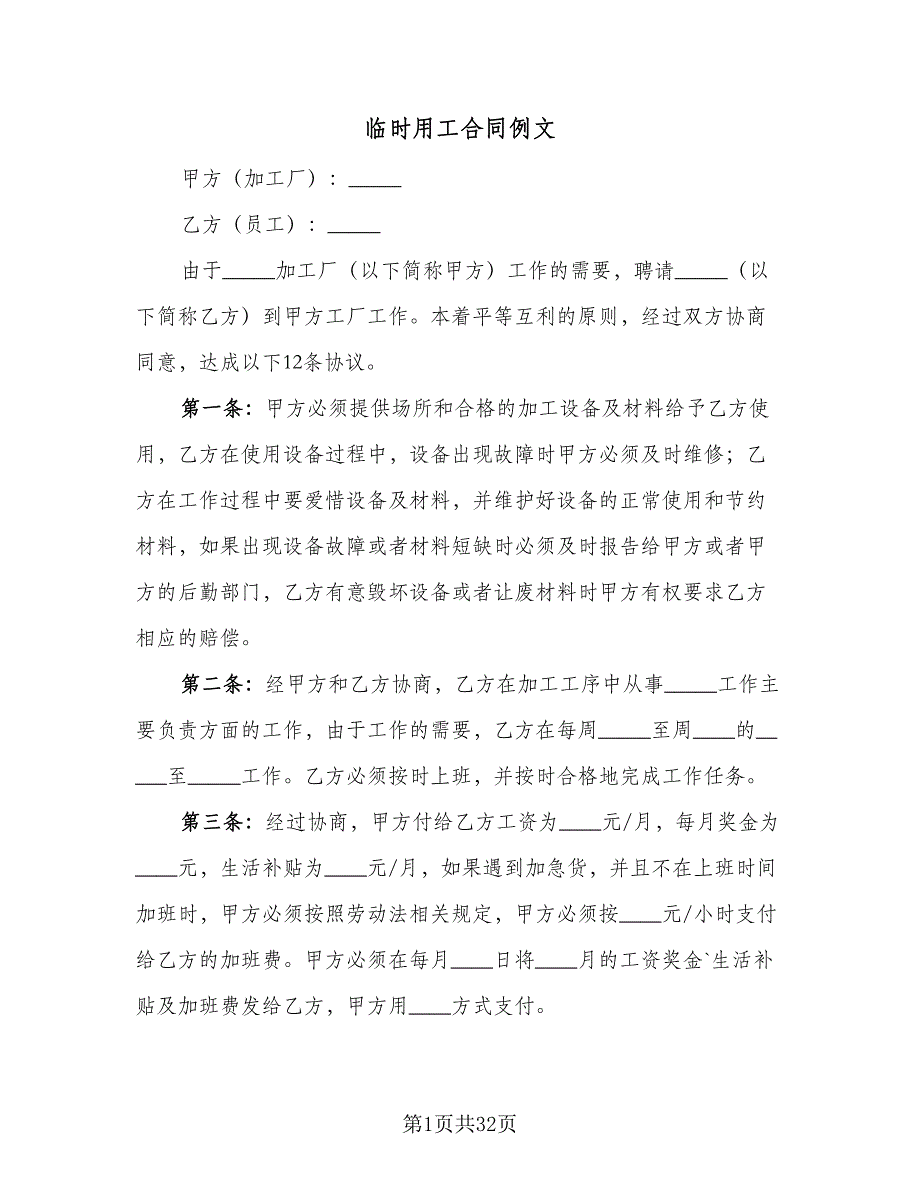 临时用工合同例文
甲方（加工厂）：_____
乙方（员工）：_____
由于_____加工厂（以下简称甲方）工作的需要，聘请_____（以
下简称乙方）到甲方工厂工作。本着平等互利的原则，经过双方协商
同意，达成以下12条协议。
第一条：甲方必须提供场所和合格的加工设备及材料给予乙方使
用，乙方在使用设备过程中，设备出现故障时甲方必须及时维修；乙
方在工作过程中要爱惜设备及材料，并维护好设备的正常使用和节约
材料，如果出现设备故障或者材料短缺时必须及时报告给甲方或者甲
方的后勤部门，乙方有意毁坏设备或者让废材料时甲方有权要求乙方
相应的赔偿。
第二条：经甲方和乙方协商，乙方在加工工序中从事_____工作主
要负责方面的工作，由于工作的需要，乙方在每周_____至周____的__
___至_____工作。乙方必须按时上班，并按时合格地完成工作任务。
第三条：经过协商，甲方付给乙方工资为____元/月，每月奖金为
____元，生活补贴为____元/月，如果遇到加急货，并且不在上班时间
加班时，甲方必须按照劳动法相关规定，甲方必须按____元/小时支付
给乙方的加班费。甲方必须在每月____日将____月的工资奖金`生活补
贴及加班费发给乙方，甲方用____方式支付。
第1页共32页